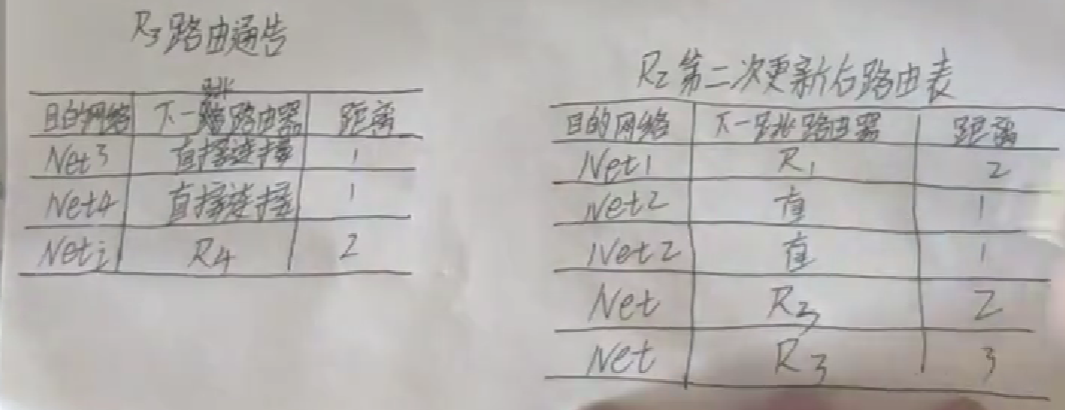 R3路由通告
目的网络 下一跳路由器 距离
Net3 直接连接 1
Net4 直接连接 1
Net2 R4 2
R2第二次更新后路由表
目的网络 下一跳路由器 距离
Net1 R1 2
Net2 直 1
Net2 直 1
Net R3 2
Net R3 3